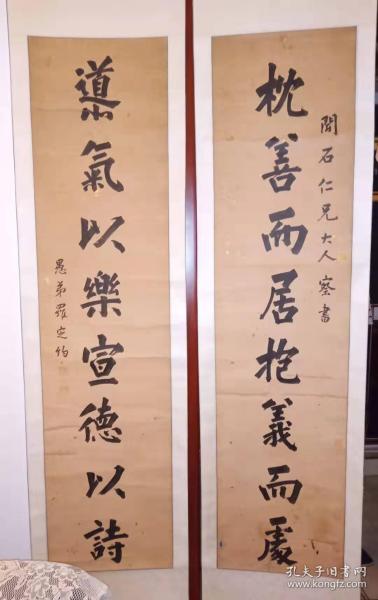 枕善而居抱義而處
閒石仁兄大人察書
導氣以樂宣德以詩
愚弟羅定約
孔夫子旧书网
www.kongfz.com